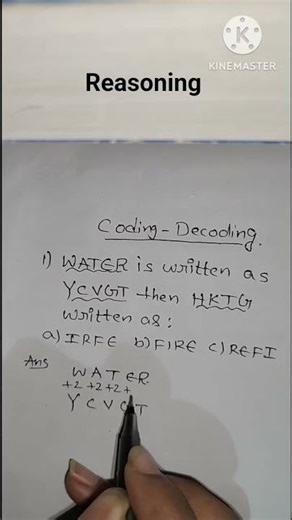 KINEMASTER
Reasoning
Coding-Decoding.
1) WATER is written as
YCVGT then HKTG
written as:
a) IRFE b) FIRE c) REFI
Ans
W A T E R
+2 +2 +2 +
Y C V G T